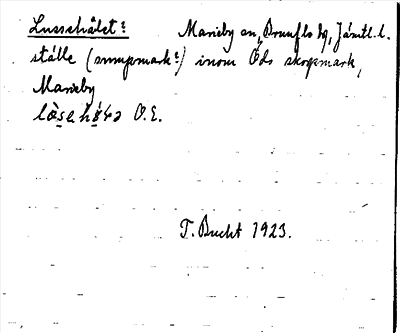 Lussehålet: Marieby sn, Brunflo tg, Jämtl. l.
ställe (sumpmark?) inom Öds skogsmark,
Marieby
O.E.
T. Bucht 1923.